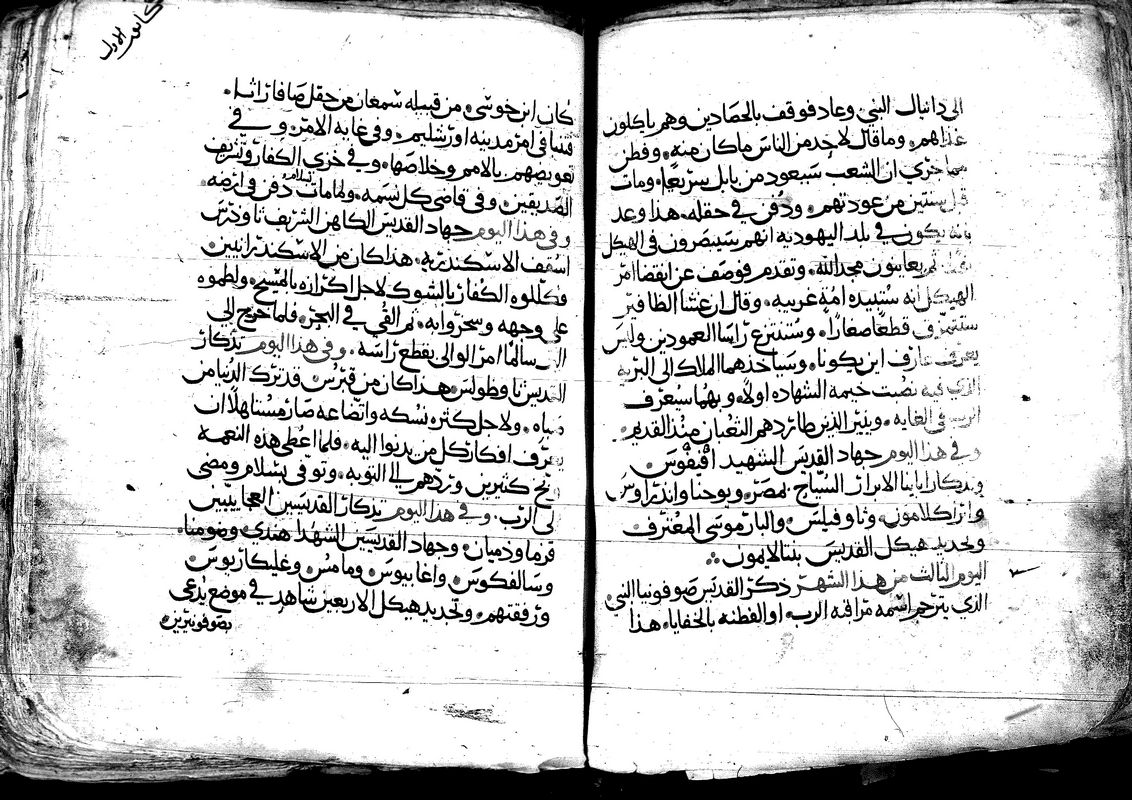 الى دانيال النبي وعاد فوقف بالحصادين وهم ياكلون
غداهم، وما قال لاحد من الناس ما كان منه، وفطن
مما جري ان الشعب سيعود من بابل سريعا، ومات
قبل سنتين من عودتهم، ودفن في حقله، هذا وعد
بانه يكون في بلد اليهوديه انهم سيبصرون في الهيكل
يعاينون مجد الله، وتقدم فوصف عن انقضا امر
الهيكل انه ستبيده امه غريبه، وقال ان غشا الظافير
سيتمزق قطعا صغارا، وستنتزع راسا العمودين وليس
يعرف عارف اين يكونا، وسياخذهما الملاك الى البريه
الذي فيه نصبت خيمة الشهاده اولا، وبهما سيعرف
الرب في الغايه، وينير الذين طاردهم الثعبان منذ القديم
وفي هذا اليوم جهاد القديس الشهيد
وتذكار ابائنا الابرار السياح بمصر، ويوحنا واندراوس
واراكلامون، وثاوفيلس، والبار موسى المعترف
وتجديد هيكل القديس بنتالايمون
اليوم الثالث من هذا الشهر ذكر القديس صوفونيا النبي
الذي يترجم اسمه مراقبة الرب، او الفطنه بالخفايا، هذا
كانون الاول
كان ابن خوسي، من قبيله شمعان من حقل صافاراثا،
فتنبا في امر مدينة اورشليم، وفي غاية الامر، وفي
تعويضهم بالامم وخلاصها، وفي خزي الكفار وتشريف
الصديقين، وفي قاضي كل نسمه، ولما مات بسلام دفن في ارضه،
وفي هذا اليوم جهاد القديس الكاهن الشريف ثاودرس
اسقف الاسكندريه، هذا كان من الاسكندرانيين
فكللوه الكفار بالشوك لاجل اكرازه بالمسيح، ولطموه
على وجهه وسخروا به، ثم القي في البحر، فلما خرج الى
البر سالما امر الوالي بقطع راسه، وفي هذا اليوم تذكار
القديس ثاوطولس هذا كان من قبرس قد ترك الدنيا من
صباه، ولاجل كثرة نسكه واتضاعه صار مستاهلا ان
يعرف افكار كل من يدنوا اليه، فلما اعطي هذه النعمه
ربح كثيرين وردهم الى التوبه، وتوفي بسلام ومضى
الى الرب، وفي هذا اليوم تذكار القديسين العجايبيين
قزما ودميان، وجهاد القديسين الشهدا هندي، وضومنا،
وسالفكوس، واغابيوس، ومامس، وغليكاريوس
ورفقتهم، وتجديد هيكل الاربعين شاهد في موضع يدعى